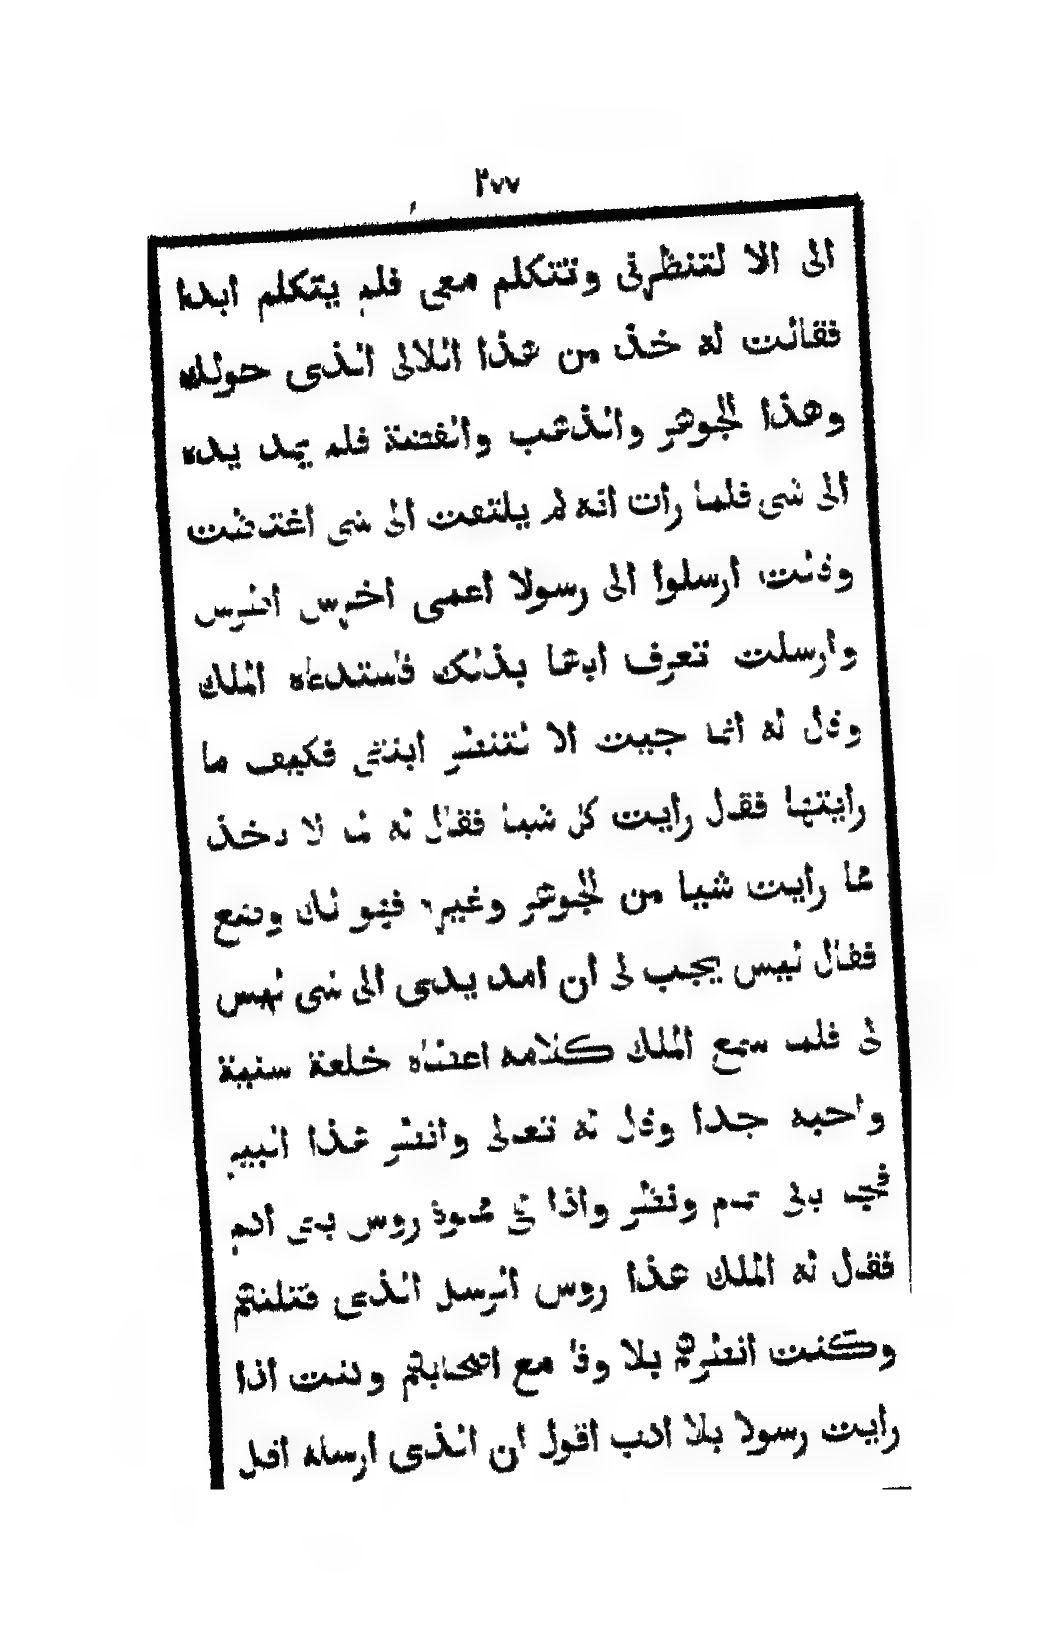 ٢٧٧
الى الا لتنظرنى وتتكلم معى فلم يتكلم ابدا
فقالت له خذ من هذا اللالى الذى حولك
وهذا الجوهر والذهب والفضة فلم يمد يده
الى شى فلما رات انه لم يلتفت الى شى اغتاظت
وقالت ارسلوا الى رسولا اعمى اخرس اطرس
وارسلت تعرف ابوها بذلك فاستدعاه الملك
وقال له انما جيت الا لتنظر ابنتى فكيف ما
رايتها فقال رايت كل شيا فقال له لما لا تاخذ
مما رايت شيا من الجوهر وغيره فهو لك وضع
فقال ليس يجب لى ان امد يدى الى شى ليس
لى فلما سمع الملك كلامه اعطاه خلعة سنية
واحبه جدا وقال له تعالى وانظر هذا البير
فجا الى تم ونظر واذا هى مملوة روس بنى ادم
فقال له الملك هذا روس الرسل الذى قتلتهم
وكنت انظرهم بلا وفا مع اصحابهم وكنت اذا
رايت رسولا بلا ادب اقول ان الذى ارسله اقل